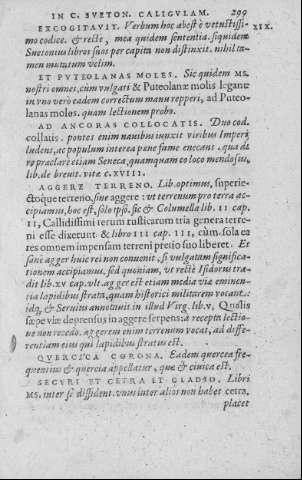 IN C. SVETON. CALIGVLAM. 299
EXCOGITAVIT. Verbum hoc abest è vetustissi- XIX.
mo codice. & rectè, mea quidem sententia. siquidem
Suetonius libros suos per capita non distinxit. nihil ta-
men mutatum velim.
ET PVTEOLANAS MOLES. Sic quidem MS.
nostri omnes, cùm vulgati & Puteolanæ molis legant
in vno verò eadem correctum manu repperi, ad Puteo-
lanas moles. quam lectionem probo.
AD ANCORAS COLLOCATIS. Duo cod.
collatis. pontes enim nauibus iunxit viribus Imperij
ludens, ac populum interea pane fame enecans. qua de
re præclarè etiam Seneca, quamquam eo loco mendosius,
lib. de breuit. vitæ c. XVIII.
AGGERE TERRENO. Lib. optimus, superie-
ctoque terreno, sine aggere: vt terrenum pro terra ac-
cipiamus, hoc est, solo ipso. sic & Columella lib. II cap.
II, Callidissimi rerum rusticarum tria genera terre-
ni esse dixerunt. & libro III cap. III, cùm sola ea
res omnem impensam terreni pretio suo liberet. Et
sanè agger huic rei non conuenit, si vulgatam significa-
tionem accipiamus, sed quoniam, vt rectè Isidorus tra-
dit lib. XV cap. vlt. agger est etiam media viæ eminen-
tia lapidibus strata, quam historici militarem vocant.
idq, & Seruius annotauit in illud Virg. lib. V, Qualis
sæpe viæ deprensus in aggere serpens: à recepta lectio-
ne non recedo. aggerem enim terrenum vocat, ad diffe-
rentiam eius qui lapidibus stratus est.
QVERCICA CORONA. Eadem quercea fre-
quentius & quercia appellatur, quæ & ciuica est.
SECVRI ET CETRA ET GLADIO. Libri
MS. inter se dissident. vnus inter alios non habet cetra,
placet